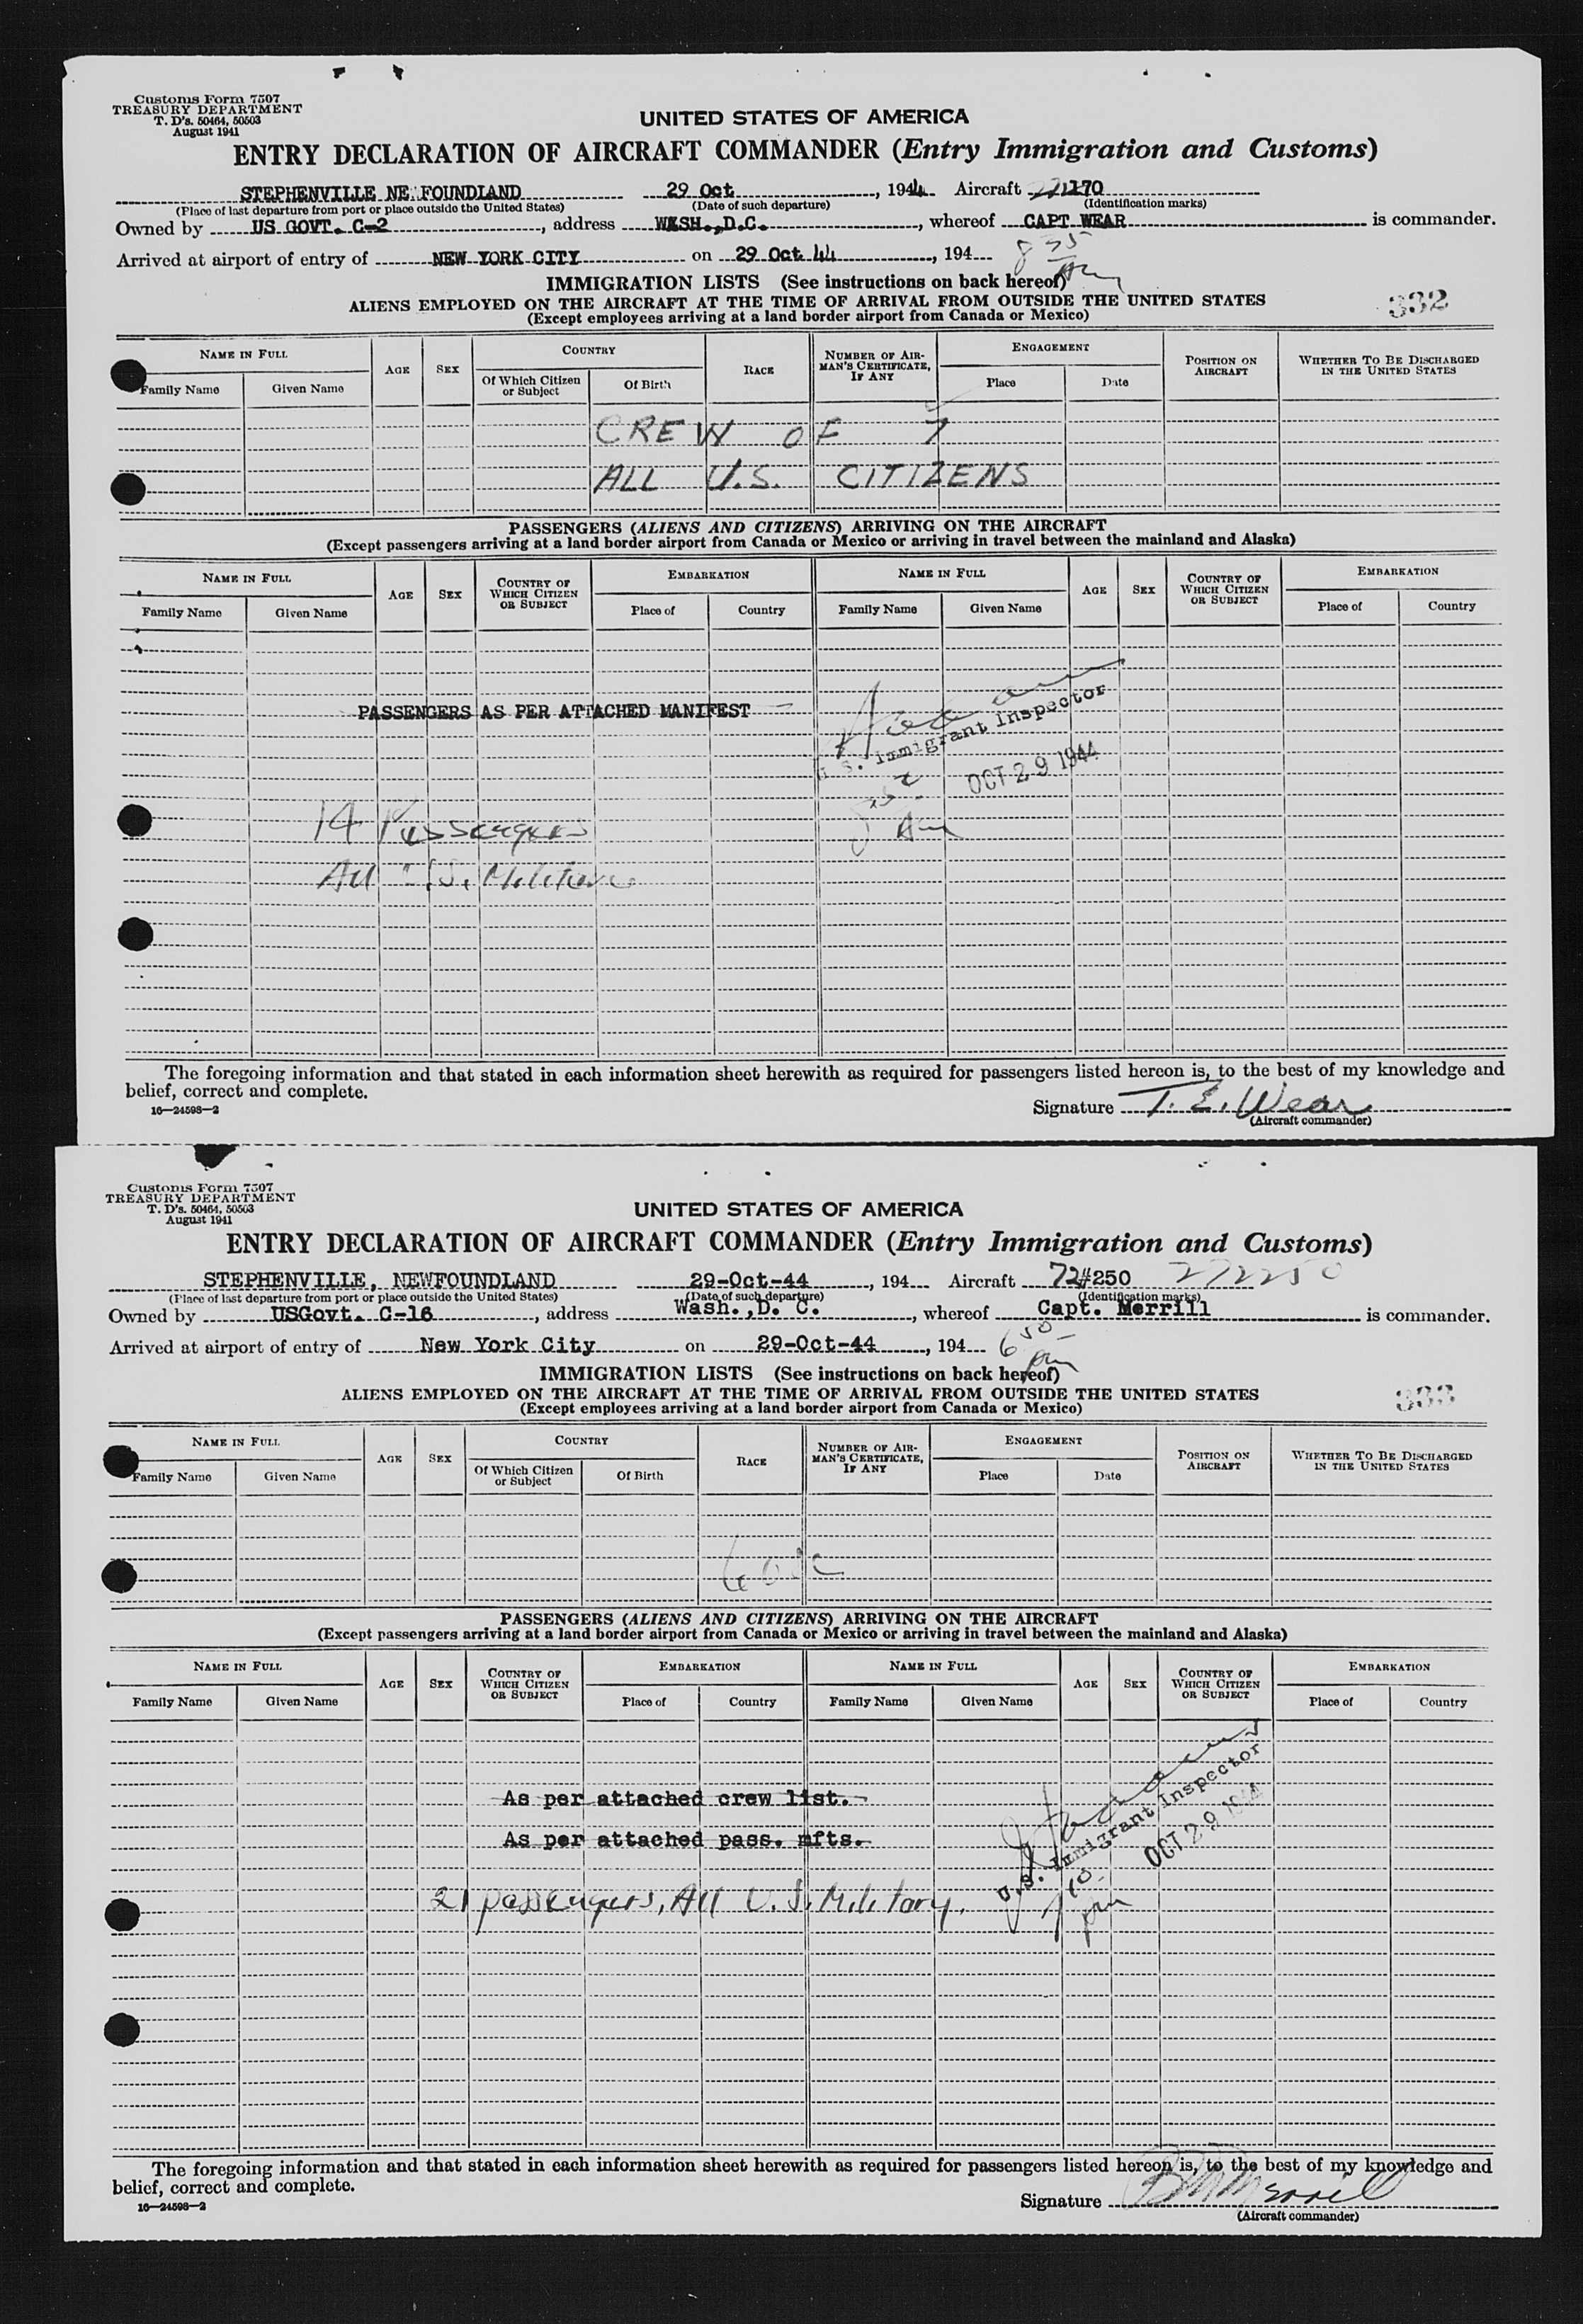 Customs Form 7507
TREASURY DEPARTMENT
T. D's. 50464, 50503
August 1941
UNITED STATES OF AMERICA
ENTRY DECLARATION OF AIRCRAFT COMMANDER (Entry Immigration and Customs)
STEPHENVILLE NE FOUNDLAND 29 Oct, 1944 Aircraft 170
(Place of last departure from port or place outside the United States) (Date of such departure) (Identification marks)
Owned by US GOVT. C-2, address WASH.,D.C., whereof CAPT WEAR is commander.
Arrived at airport of entry of NEW YORK CITY on 29 Oct 44, 194 8 35
AM
IMMIGRATION LISTS (See instructions on back hereof)
ALIENS EMPLOYED ON THE AIRCRAFT AT THE TIME OF ARRIVAL FROM OUTSIDE THE UNITED STATES
(Except employees arriving at a land border airport from Canada or Mexico)
332
NAME IN FULL AGE SEX COUNTRY RACE NUMBER OF AIRMAN'S CERTIFICATE, IF ANY ENGAGEMENT POSITION ON AIRCRAFT WHETHER TO BE DISCHARGED IN THE UNITED STATES
Family Name Given Name Of Which Citizen or Subject Of Birth Place Date
CREW OF 7
ALL U.S. CITIZENS
PASSENGERS (ALIENS AND CITIZENS) ARRIVING ON THE AIRCRAFT
(Except passengers arriving at a land border airport from Canada or Mexico or arriving in travel between the mainland and Alaska)
NAME IN FULL AGE SEX COUNTRY OF WHICH CITIZEN OR SUBJECT EMBARKATION NAME IN FULL AGE SEX COUNTRY OF WHICH CITIZEN OR SUBJECT EMBARKATION
Family Name Given Name Place of Country Family Name Given Name Place of Country
PASSENGERS AS PER ATTACHED MANIFEST
S. Immigrant Inspector
OCT 29 1944
14 Passengers
AM
All U.S. Military
The foregoing information and that stated in each information sheet herewith as required for passengers listed hereon is, to the best of my knowledge and
belief, correct and complete.
16—24598—2
Signature T. E. Wear
(Aircraft commander)
Customs Form 7507
TREASURY DEPARTMENT
T. D's. 50464, 50503
August 1941
UNITED STATES OF AMERICA
ENTRY DECLARATION OF AIRCRAFT COMMANDER (Entry Immigration and Customs)
STEPHENVILLE, NEWFOUNDLAND 29-Oct-44, 194 Aircraft 72#250 272250
(Place of last departure from port or place outside the United States) (Date of such departure) (Identification marks)
Owned by USGovt. C-16, address Wash.,D. C., whereof Capt. Merrill is commander.
Arrived at airport of entry of New York City on 29-Oct-44, 194 6 50
pm
IMMIGRATION LISTS (See instructions on back hereof)
ALIENS EMPLOYED ON THE AIRCRAFT AT THE TIME OF ARRIVAL FROM OUTSIDE THE UNITED STATES
(Except employees arriving at a land border airport from Canada or Mexico)
333
NAME IN FULL AGE SEX COUNTRY RACE NUMBER OF AIRMAN'S CERTIFICATE, IF ANY ENGAGEMENT POSITION ON AIRCRAFT WHETHER TO BE DISCHARGED IN THE UNITED STATES
Family Name Given Name Of Which Citizen or Subject Of Birth Place Date
PASSENGERS (ALIENS AND CITIZENS) ARRIVING ON THE AIRCRAFT
(Except passengers arriving at a land border airport from Canada or Mexico or arriving in travel between the mainland and Alaska)
NAME IN FULL AGE SEX COUNTRY OF WHICH CITIZEN OR SUBJECT EMBARKATION NAME IN FULL AGE SEX COUNTRY OF WHICH CITIZEN OR SUBJECT EMBARKATION
Family Name Given Name Place of Country Family Name Given Name Place of Country
As per attached crew list.
As per attached pass. mfts.
U.S. Immigrant Inspector
OCT 29 1944
21 passengers, All U.S. Military.
7 10
pm
The foregoing information and that stated in each information sheet herewith as required for passengers listed hereon is, to the best of my knowledge and
belief, correct and complete.
16—24598—2
Signature Merrill
(Aircraft commander)